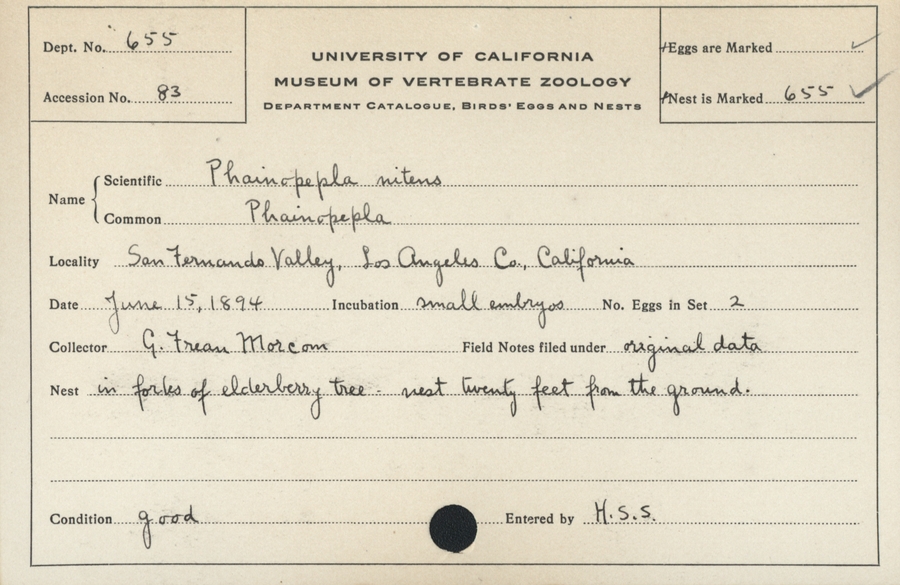 Dept. No. 655
Accession No. 83
UNIVERSITY OF CALIFORNIA
MUSEUM OF VERTEBRATE ZOOLOGY
DEPARTMENT CATALOGUE, BIRDS' EGGS AND NESTS
Eggs are Marked ✓
Nest is Marked 655 ✓
Name { Scientific Phainopepla nitens
Common Phainopepla
Locality San Fernando Valley, Los Angeles Co., California
Date June 15, 1894 Incubation small embryos No. Eggs in Set 2
Collector G. Frean Morcom Field Notes filed under original data
Nest in forks of elderberry tree - nest twenty feet from the ground.
Condition good Entered by H.S.S.